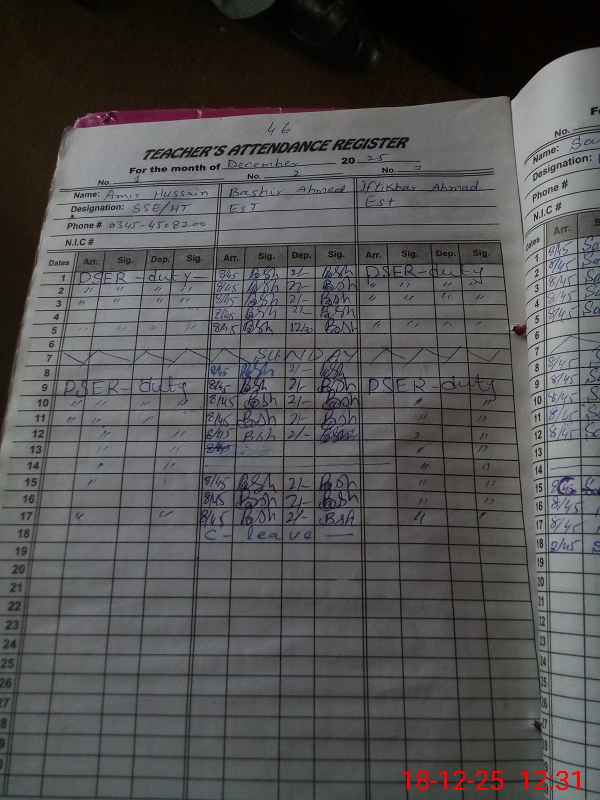 46
TEACHER'S ATTENDANCE REGISTER
For the month of December 2025
No. 1 No. 2 No. 3
Name: Amir Hussain Bashir Ahmed Iftikhar Ahmad
Designation: SSE/HT EST Est
Phone # 0345-4508200
N.I.C #
Dates Arr. Sig. Dep. Sig. Arr. Sig. Dep. Sig. Arr. Sig. Dep. Sig.
1 DSER-duty- 8/45 BSh 2/- BSh DSER-duty
2 " " " " 8/45 BSh 2/- BSh " " " "
3 " " " " 8/45 BSh 2/- BSh " " " "
4 8/45 BSh 2/- BSh
5 " " " " 8/45 BSh BSh " " " "
7 SUNDAY
8 8/45 BSh 2/- BSh
9 DSER-duty 8/45 BSh 2/- BSh DSER-duty
10 " " " " 8/45 BSh 2/- BSh " "
11 " " " " 8/45 BSh 2/- BSh " "
12 " " 8/45 BSh 2/- BSh " "
13 " " " "
14 " " " "
15 " 8/45 BSh 2/- BSh " "
16 8/45 BSh 2/- BSh " "
17 " " 8/45 BSh 2/- BSh " "
18 C- leave —
19
20
21
22
23
24
25
26
27
28
29
30
No.
Name:
Designation:
Phone #
N.I.C #
Dates Arr. Sig.
1 8/45
2 8/45
3 8/45
4 8/45
5 8/45
7
8 8/45
9 8/45
10 8/45
11 8/45
12 8/45
13
14
15
16 8/45
17 8/45
18 8/45
19
20
21
22
23
24
25
26
27
18-12-25 12:31